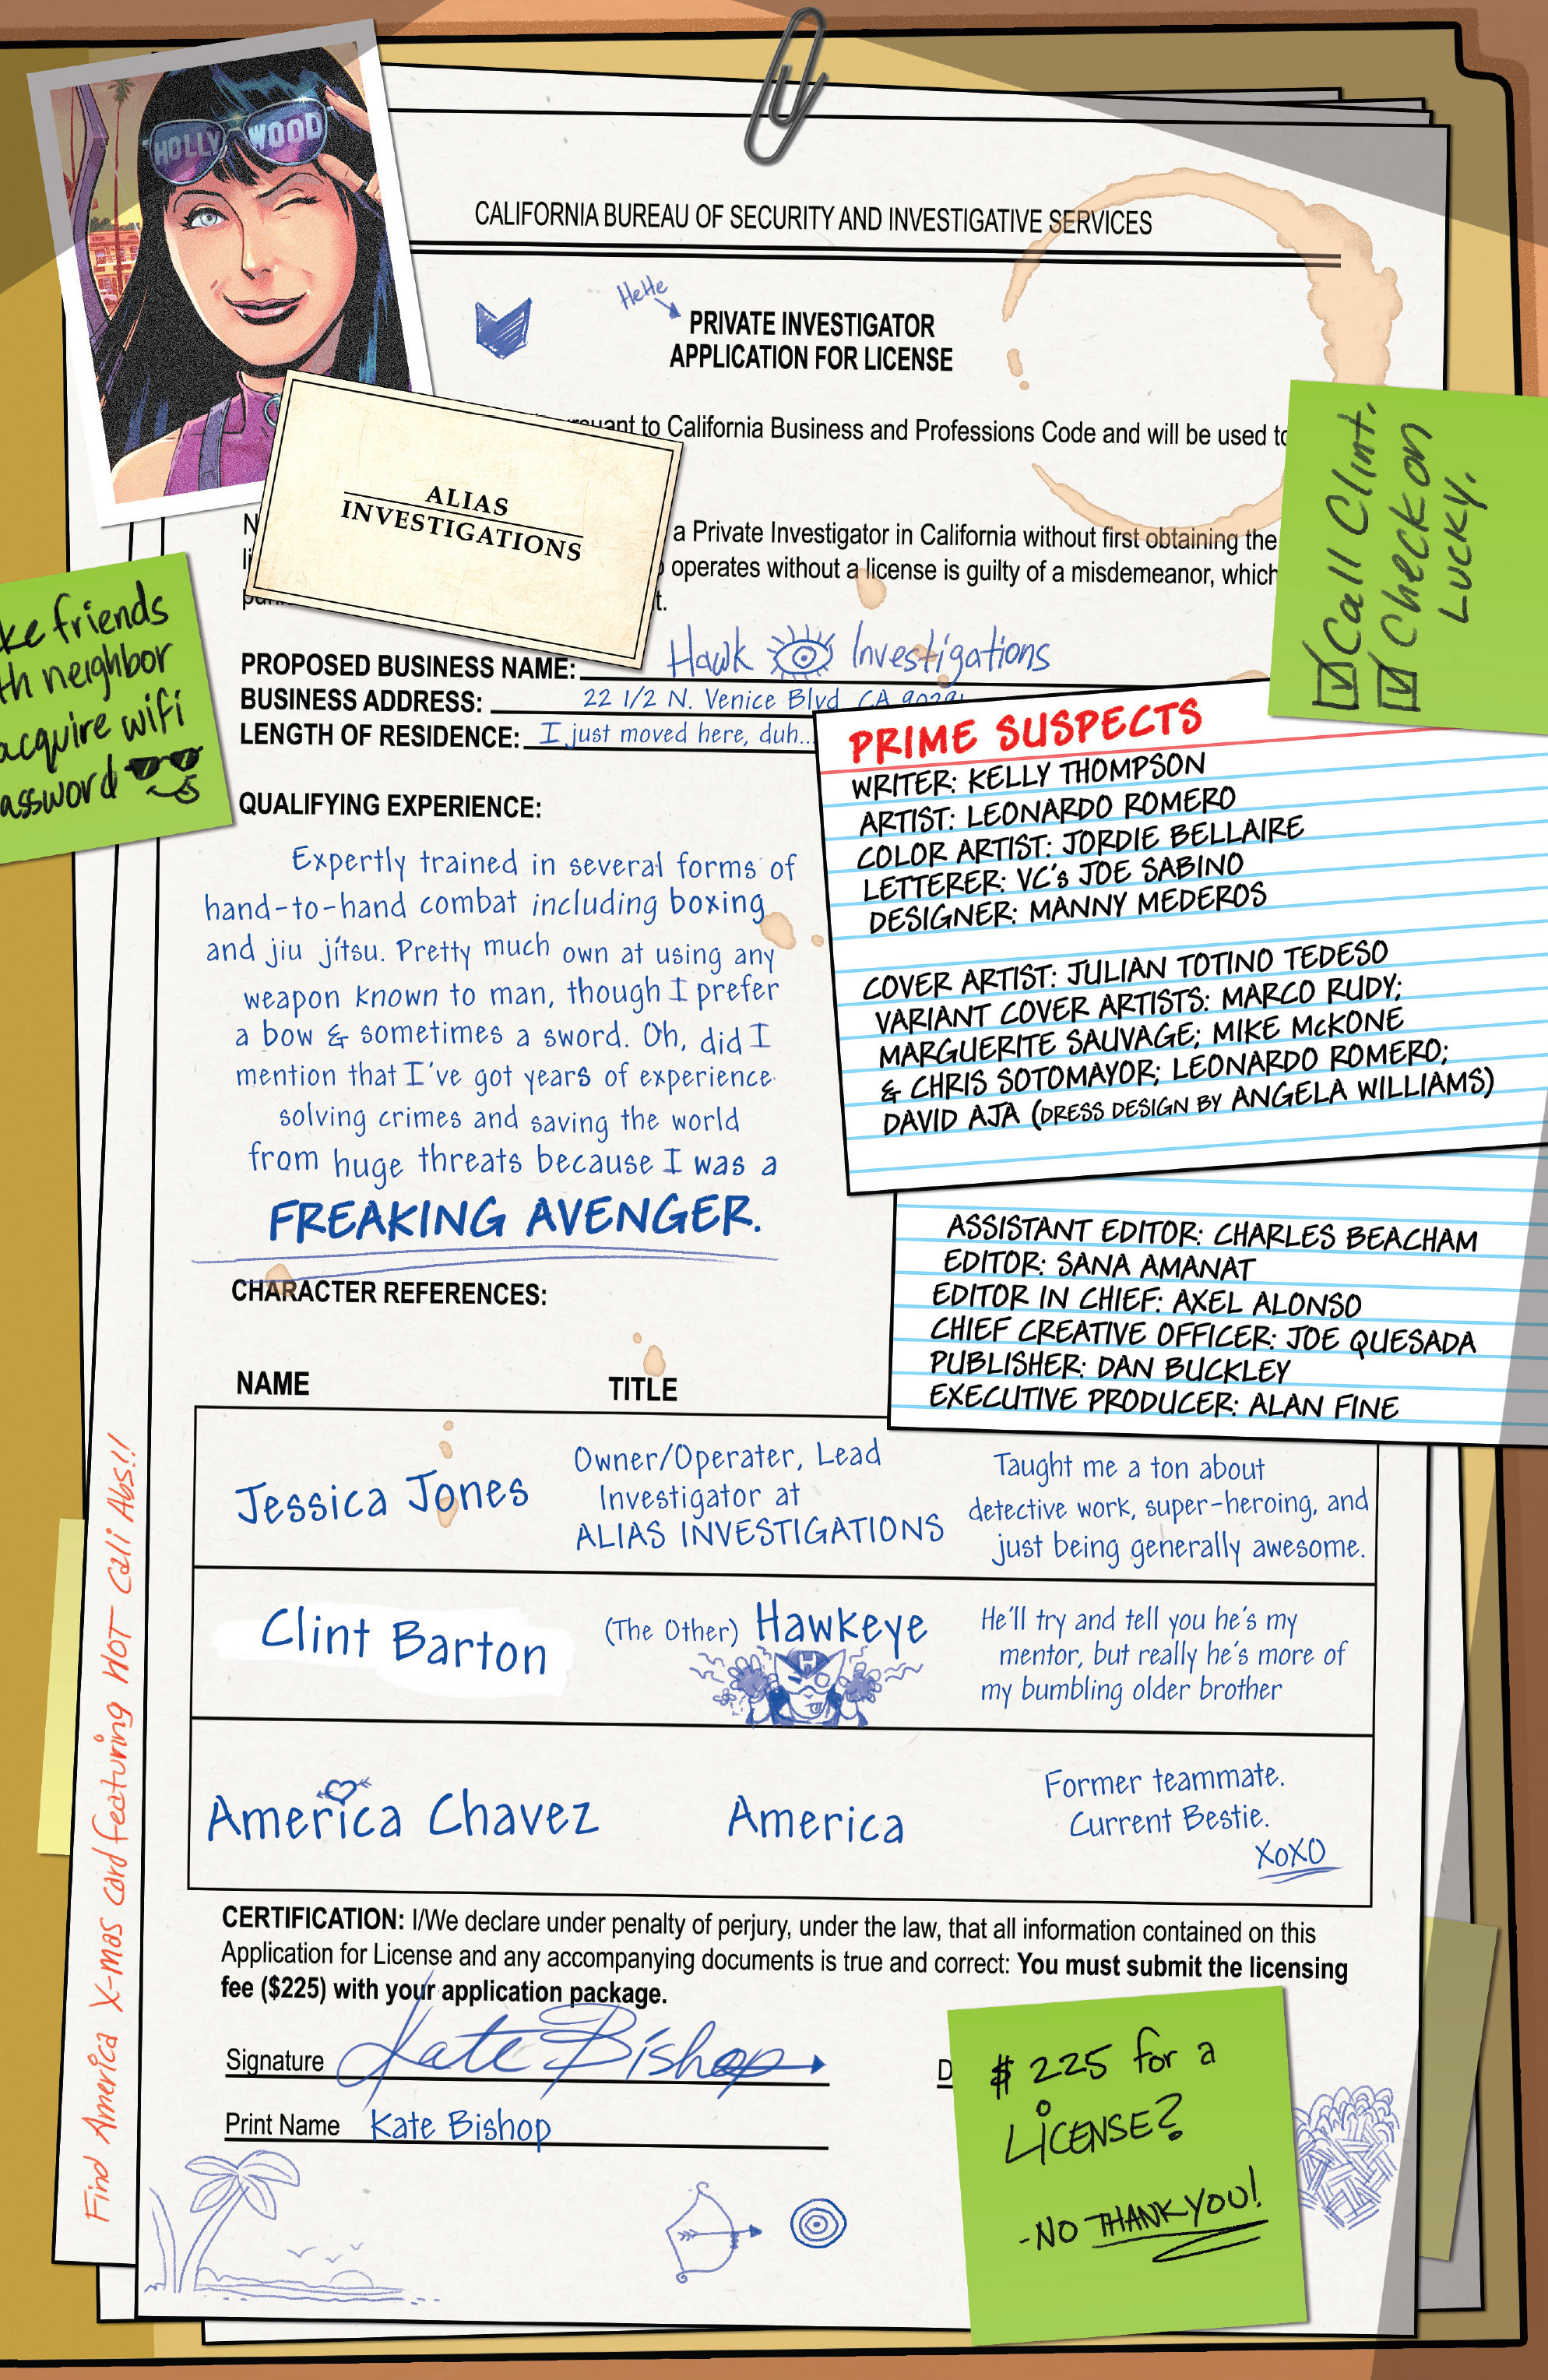 HOLLYWOOD
CALIFORNIA BUREAU OF SECURITY AND INVESTIGATIVE SERVICES
HeHe
PRIVATE INVESTIGATOR
APPLICATION FOR LICENSE
to California Business and Professions Code and will be used to
ALIAS
INVESTIGATIONS
a Private Investigator in California without first obtaining the
operates without a license is guilty of a misdemeanor, which
Call Clint.
Check on
Lucky.
friends
neighbor
acquire wifi
PROPOSED BUSINESS NAME: Hawk Investigations
BUSINESS ADDRESS: 22 1/2 N. Venice Blvd. CA
LENGTH OF RESIDENCE: I just moved here, duh...
QUALIFYING EXPERIENCE:
Expertly trained in several forms of
hand-to-hand combat including boxing
and jiu jitsu. Pretty much own at using any
weapon known to man, though I prefer
a bow & sometimes a sword. Oh, did I
mention that I've got years of experience
solving crimes and saving the world
from huge threats because I was a
FREAKING AVENGER.
PRIME SUSPECTS
WRITER: KELLY THOMPSON
ARTIST: LEONARDO ROMERO
COLOR ARTIST: JORDIE BELLAIRE
LETTERER: VC's JOE SABINO
DESIGNER: MANNY MEDEROS
COVER ARTIST: JULIAN TOTINO TEDESO
VARIANT COVER ARTISTS: MARCO RUDY;
MARGUERITE SAUVAGE; MIKE McKONE
& CHRIS SOTOMAYOR; LEONARDO ROMERO;
DAVID AJA (DRESS DESIGN BY ANGELA WILLIAMS)
ASSISTANT EDITOR: CHARLES BEACHAM
EDITOR: SANA AMANAT
EDITOR IN CHIEF: AXEL ALONSO
CHIEF CREATIVE OFFICER: JOE QUESADA
PUBLISHER: DAN BUCKLEY
EXECUTIVE PRODUCER: ALAN FINE
CHARACTER REFERENCES:
NAME TITLE
Jessica Jones
Owner/Operater, Lead
Investigator at
ALIAS INVESTIGATIONS
Taught me a ton about
detective work, super-heroing, and
just being generally awesome.
Clint Barton
(The Other) Hawkeye
H
He'll try and tell you he's my
mentor, but really he's more of
my bumbling older brother
America Chavez
America
Former teammate.
Current Bestie.
XoXO
Find America X-mas card featuring HOT Cali Abs!!
CERTIFICATION: I/We declare under penalty of perjury, under the law, that all information contained on this
Application for License and any accompanying documents is true and correct: You must submit the licensing
fee ($225) with your application package.
Signature Kate Bishop
Print Name Kate Bishop
$225 for a
LiCENSE?
-NO THANK YOU!